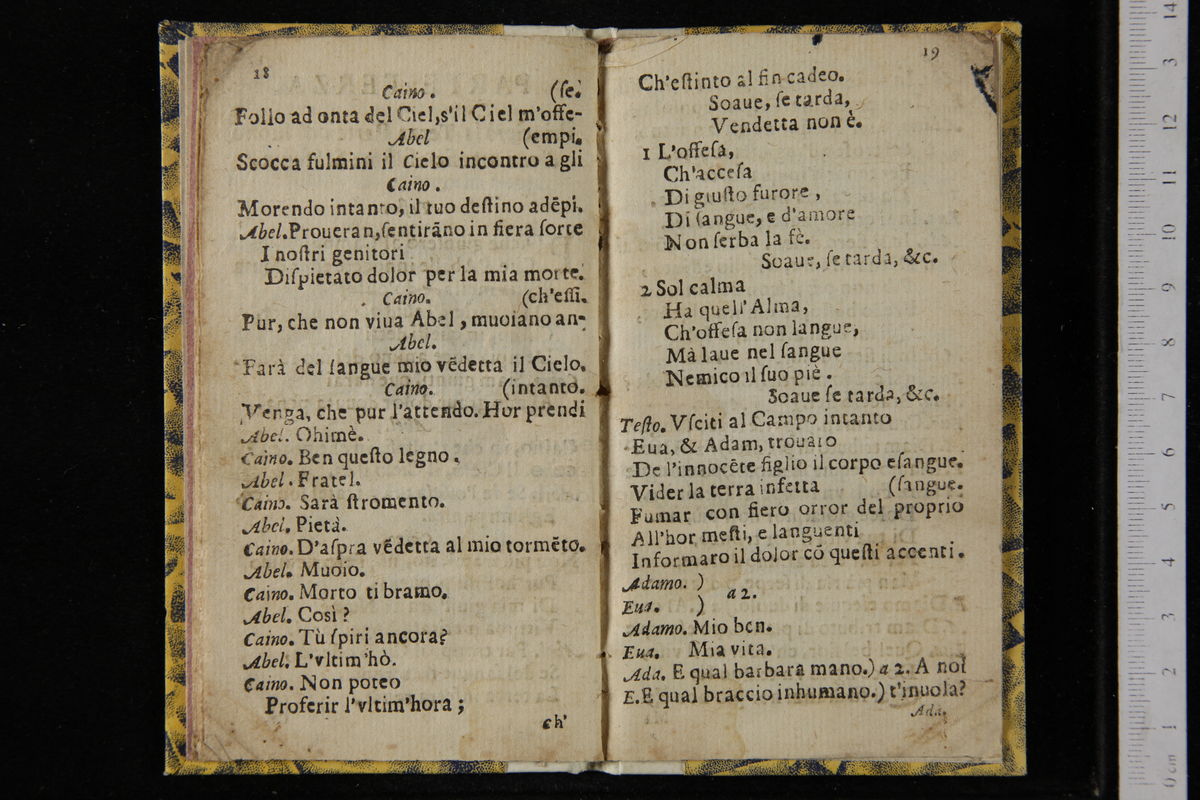 18
Caino. (ſe.
Follo ad onta del Ciel,s'il Ciel m'offe-
Abel (empi.
Scocca fulmini il Cielo incontro a gli
Caino.
Morendo intanto, il tuo deſtino adẽpi.
Abel.Proueran,ſentirãno in fiera ſorte
I noſtri genitori
Diſpietato dolor per la mia morte.
Caino. (ch'eſſi.
Pur, che non viua Abel, muoiano an-
Abel.
Farà del ſangue mio vẽdetta il Cielo.
Caino. (intanto.
Venga, che pur l'attendo. Hor prendi
Abel. Ohimè.
Caino. Ben queſto legno.
Abel. Fratel.
Caino. Sarà ſtromento.
Abel. Pietà.
Caino. D'aſpra vẽdetta al mio tormẽto.
Abel. Muoio.
Caino. Morto ti bramo.
Abel. Così?
Caino. Tù ſpiri ancora?
Abel. L'vltim'hò.
Caino. Non poteo
Proferir l'vltim'hora;
ch'
19
Ch'eſtinto al fin cadeo.
Soaue, ſe tarda,
Vendetta non è.
1 L'offeſa,
Ch'acceſa
Di giuſto furore,
Di ſangue, e d'amore
Non ſerba la fè.
Soaue, ſe tarda, &c.
2 Sol calma
Ha quell'Alma,
Ch'offeſa non langue,
Mà laue nel ſangue
Nemico il ſuo piè.
Soaue ſe tarda, &c.
Teſto. Vſciti al Campo intanto
Eua, & Adam, trouaro
De l'innocẽte figlio il corpo eſangue.
Vider la terra infetta (ſangue.
Fumar con fiero orror del proprio
All'hor meſti, e languenti
Informaro il dolor cõ queſti accenti.
Adamo. )
a 2.
Eua. )
Adamo. Mio ben.
Eua. Mia vita.
Ada. E qual barbara mano.) a 2. A noi
E.E qual braccio inhumano.) t'inuola?
Ada.